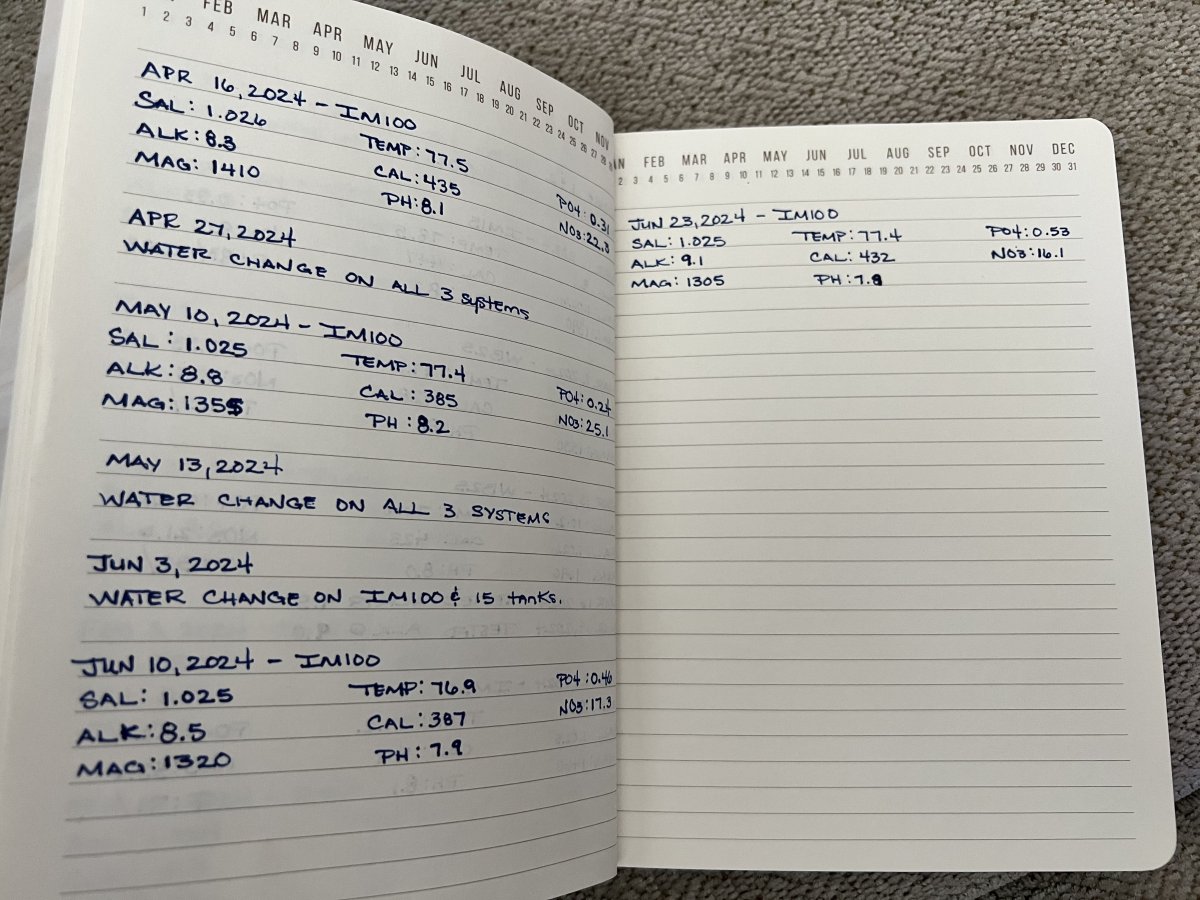 FEB MAR APR MAY JUN JUL AUG SEP OCT NOV
1 2 3 4 5 6 7 8 9 10 11 12 13 14 15 16 17 18 19 20 21 22 23 24 25 26 27 28
APR 16, 2024 - IM100
SAL: 1.026 TEMP: 77.5 PO4: 0.31
ALK: 8.3 CAL: 435 NO3: 22.3
MAG: 1410 PH: 8.1
APR 27, 2024
WATER CHANGE ON ALL 3 systems
MAY 10, 2024 - IM100
SAL: 1.025 TEMP: 77.4 PO4: 0.24
ALK: 8.8 CAL: 385 NO3: 25.1
MAG: 1355 PH: 8.2
MAY 13, 2024
WATER CHANGE ON ALL 3 SYSTEMS
JUN 3, 2024
WATER CHANGE ON IM100 & 15 tanks.
JUN 10, 2024 - IM100
SAL: 1.025 TEMP: 76.9 PO4: 0.46
ALK: 8.5 CAL: 387 NO3: 17.3
MAG: 1320 PH: 7.9
FEB MAR APR MAY JUN JUL AUG SEP OCT NOV DEC
2 3 4 5 6 7 8 9 10 11 12 13 14 15 16 17 18 19 20 21 22 23 24 25 26 27 28 29 30 31
JUN 23, 2024 - IM100
SAL: 1.025 TEMP: 77.4 PO4: 0.53
ALK: 9.1 CAL: 432 NO3: 16.1
MAG: 1305 PH: 7.8